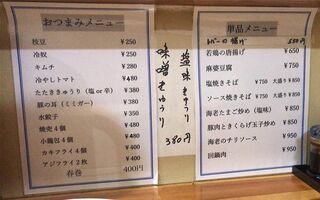 おつまみメニュー
枝豆 ¥250
冷奴 ¥250
キムチ ¥280
冷やしトマト ¥480
たたききゅうり（塩or辛） ¥380
豚の耳（ミミガー） ¥380
水餃子 ¥350
焼売4個 ¥380
小籠包4個 ¥480
カキフライ4個 ¥480
アジフライ2枚 ¥480
春巻 400円
塩味きゅうり
味噌きゅうり
380円
単品メニュー
レバーの揚げ 550円
若鶏の唐揚げ ¥650
麻婆豆腐 ¥750
塩焼きそば ¥750 大盛り ¥850
ソース焼きそば ¥750 大盛り ¥850
海老たまご炒め（塩味） ¥850
豚肉ときくらげ玉子炒め ¥850
海老のチリソース ¥950
回鍋肉 ¥950